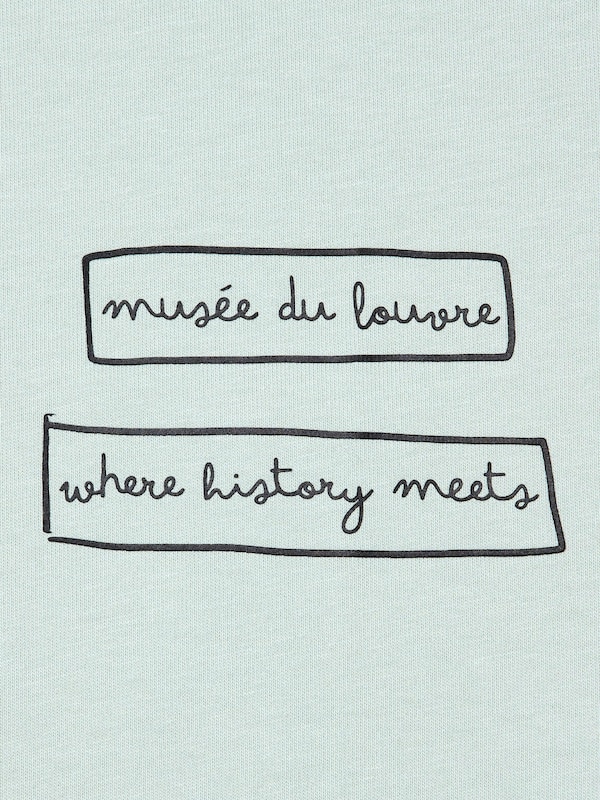 musée du louvre
where history meets